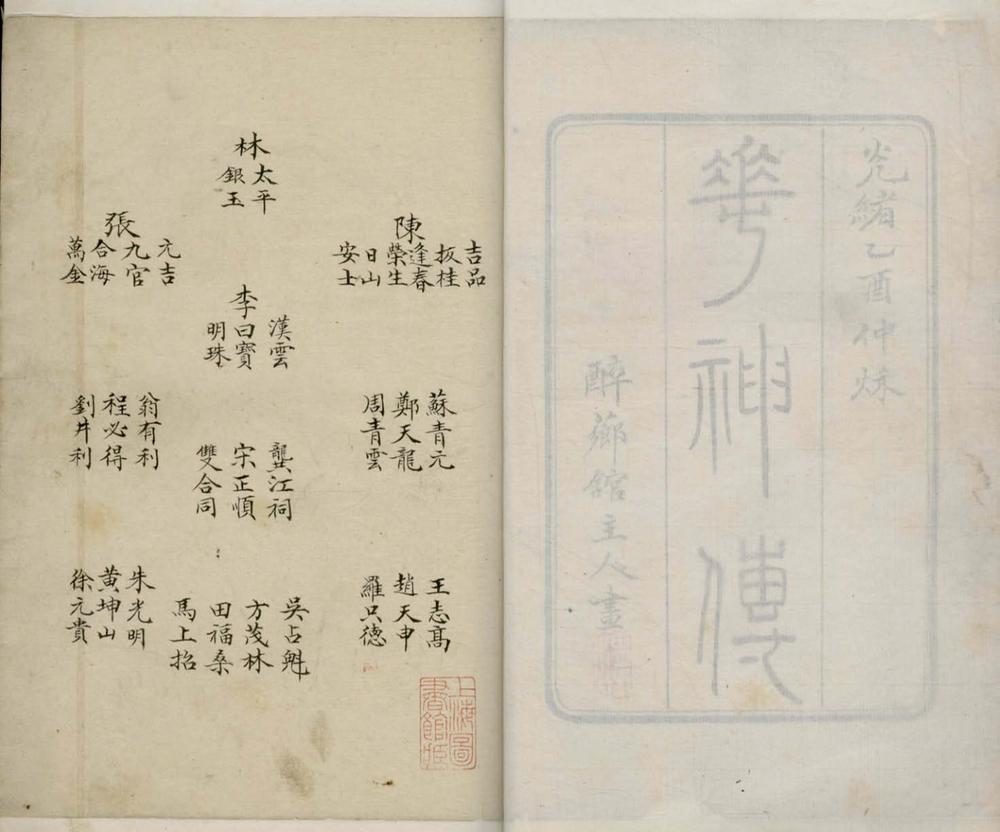 光緒乙酉仲秌
華神傳
醉薌館主人畫
陳
吉品
扳桂
逢春
榮生
日山
安士
林
太平
銀玉
張
元吉
九官
合海
萬金
漢雲
李曰寶
明珠
蘇青元
鄭天龍
周青雲
龔江祠
宋正順
雙合同
翁有利
程必得
劉井利
王志髙
趙天申
羅只徳
吳占魁
方茂林
田福桑
馬上招
朱光明
黄坤山
徐元貴
上海圖
書館藏